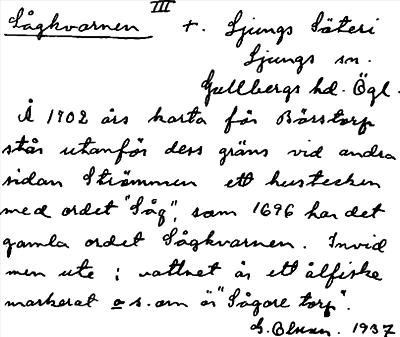 Sågkvarnen III +. Ljungs Säteri
Ljungs sn.
Gullbergs hd. Ögl.
Å 1702 års karta för Börstorp
står utanför dess gräns vid andra
sidan Strömmen ett hustecken
med ordet "Såg", som 1696 har det
gamla ordet Sågkvarnen. Invid
men ute i vattnet är ett ålfiske
markerat o s. om är "Sågare torp".
G. Olsson. 1937